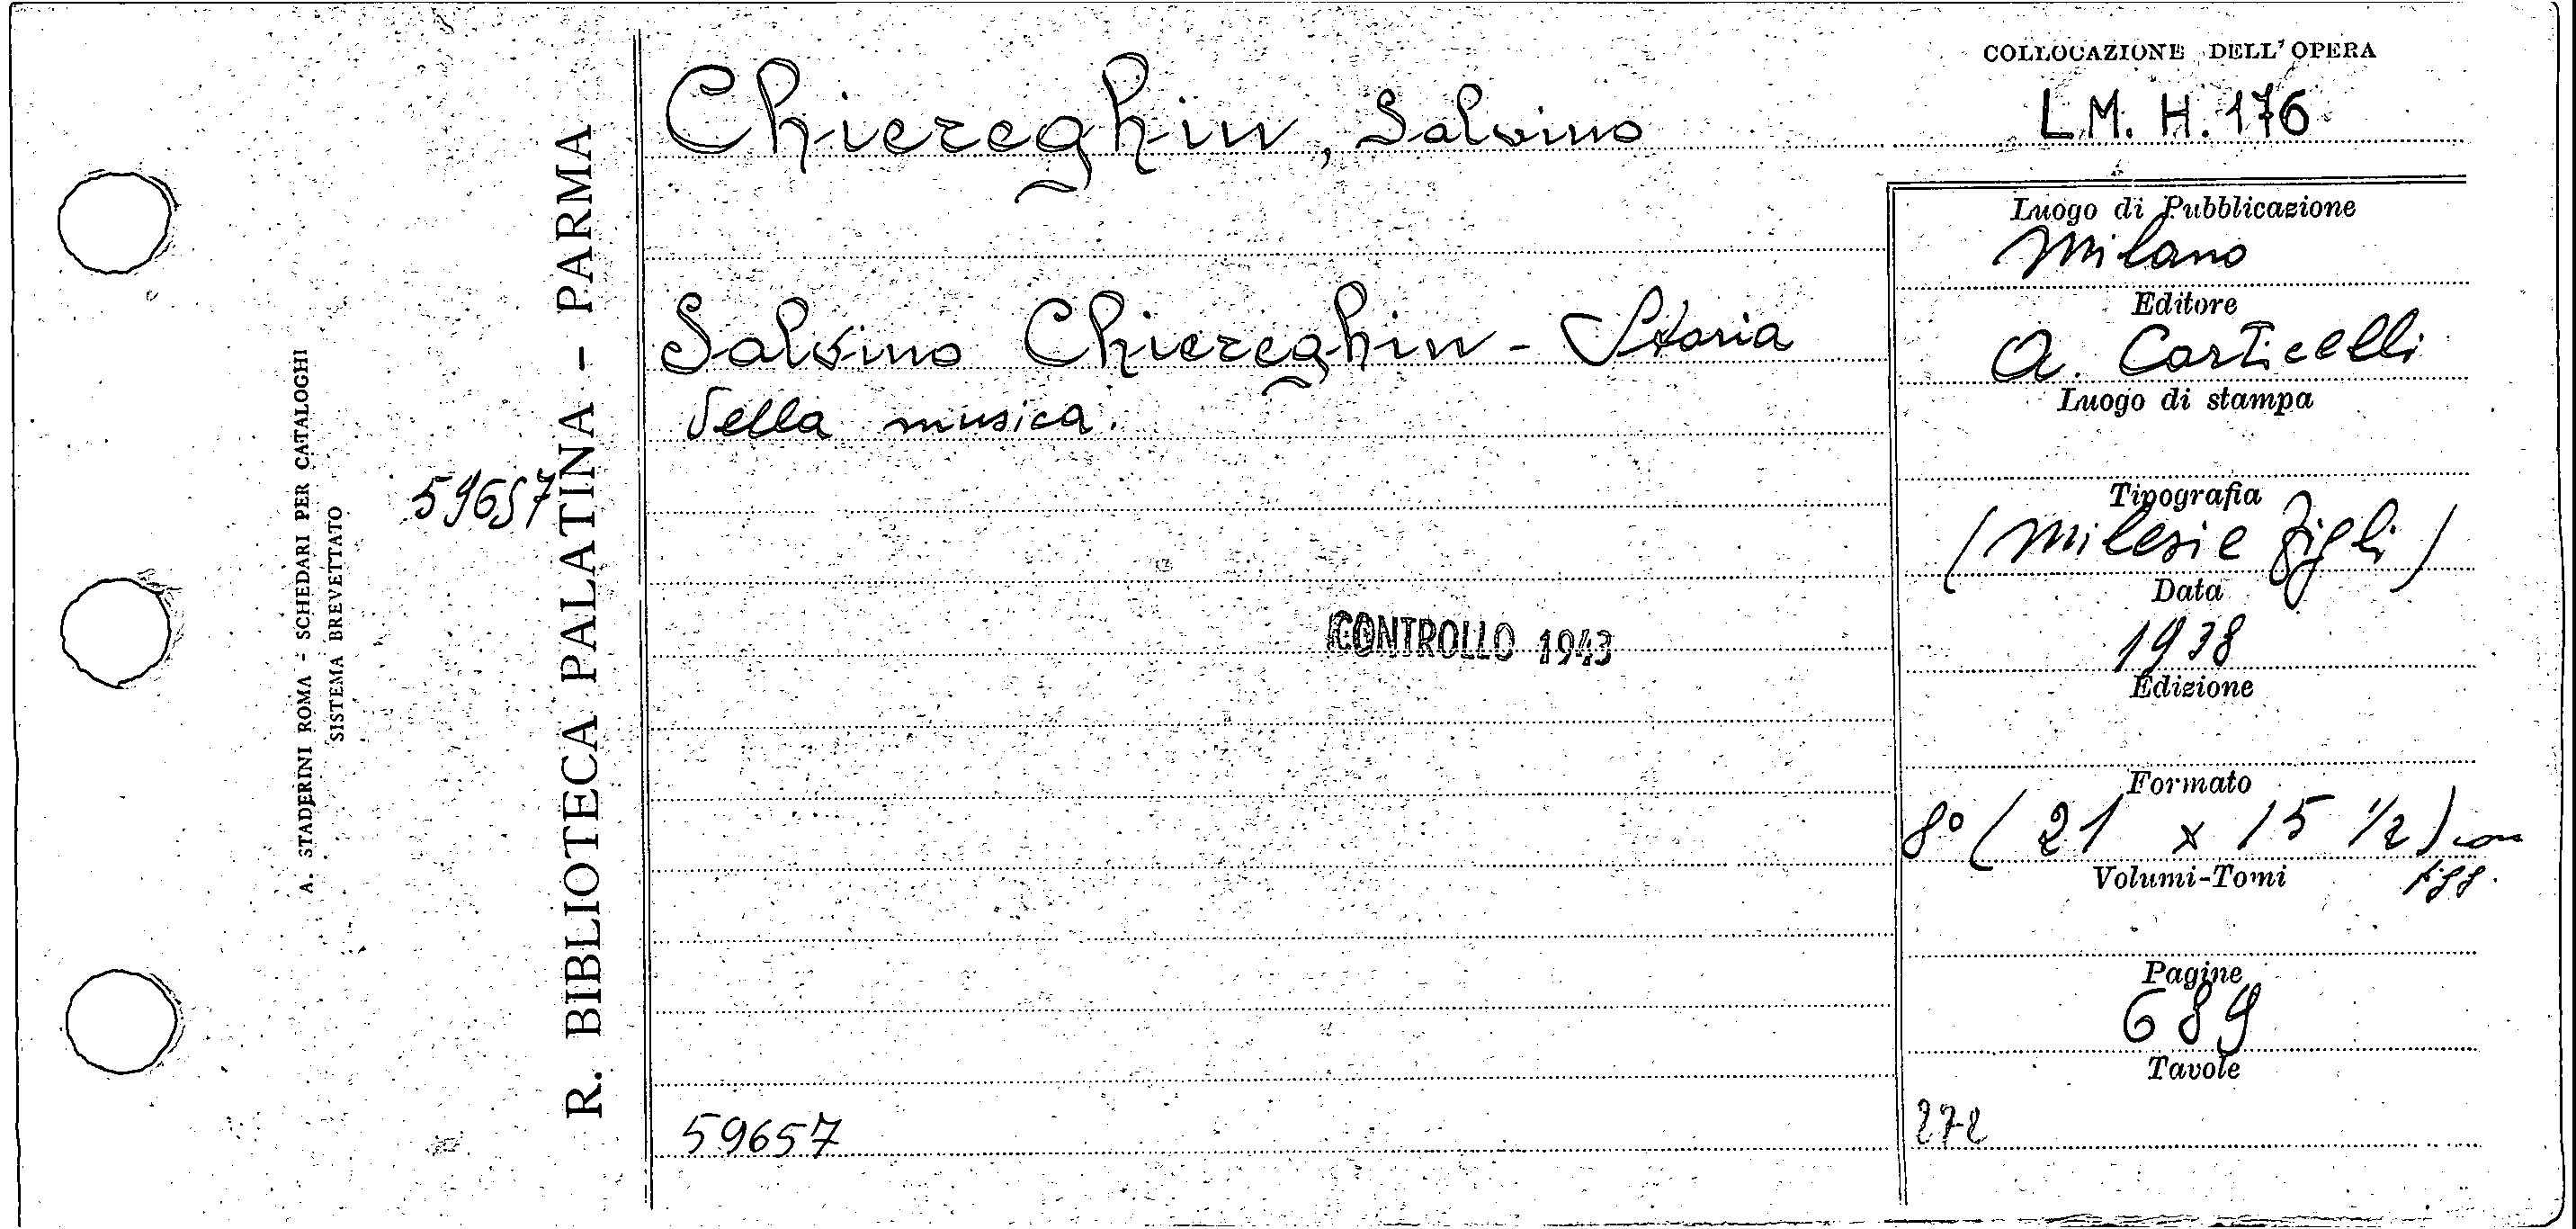 A. STADERINI ROMA - SCHEDARI PER CATALOGHI
SISTEMA BREVETTATO
59657
R. BIBLIOTECA PALATINA - PARMA
Chiereghin, Salvino
Salvino Chiereghin - Storia
della musica.
CONTROLLO 1943
59657
COLLOCAZIONE DELL'OPERA
L.M. H. 176
Luogo di Pubblicazione
Milano
Editore
A. Corticelli
Luogo di stampa
Tipografia
(Milesi e figli)
Data
1938
Edizione
Formato
8° (21 x 15 1/2) con
figg.
Volumi-Tomi
Pagine
689
Tavole
272